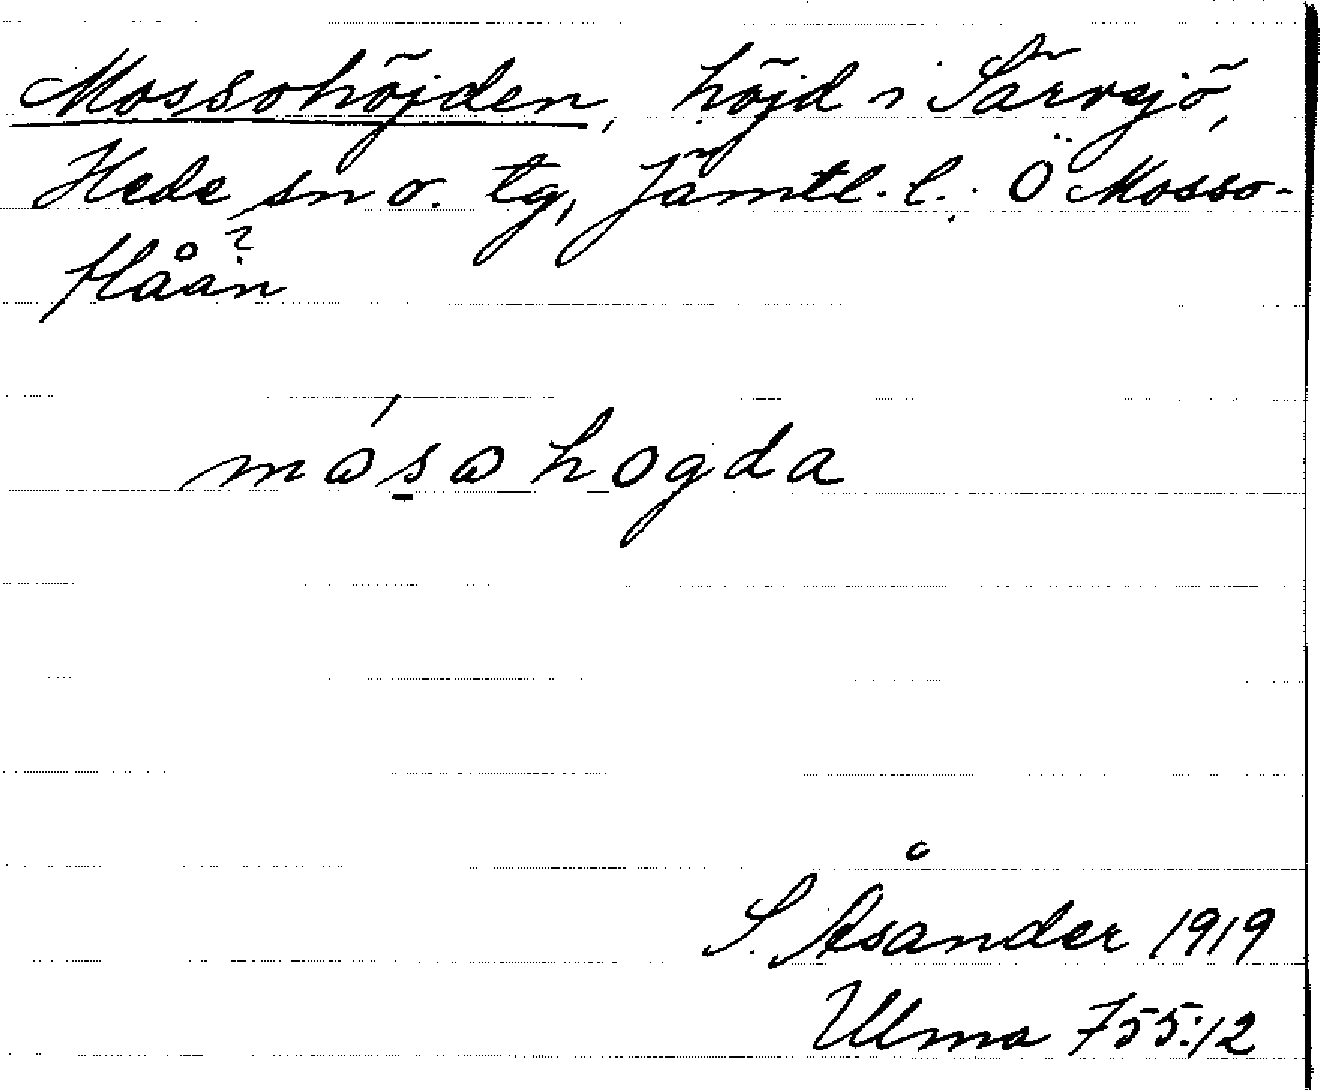 Mossohöjden, höjd i Särvsjö,
Hede sn o. tg, Jämtl. l. Ö Mosso-
flåan?
S. Åsander 1919
Ulma 755:12